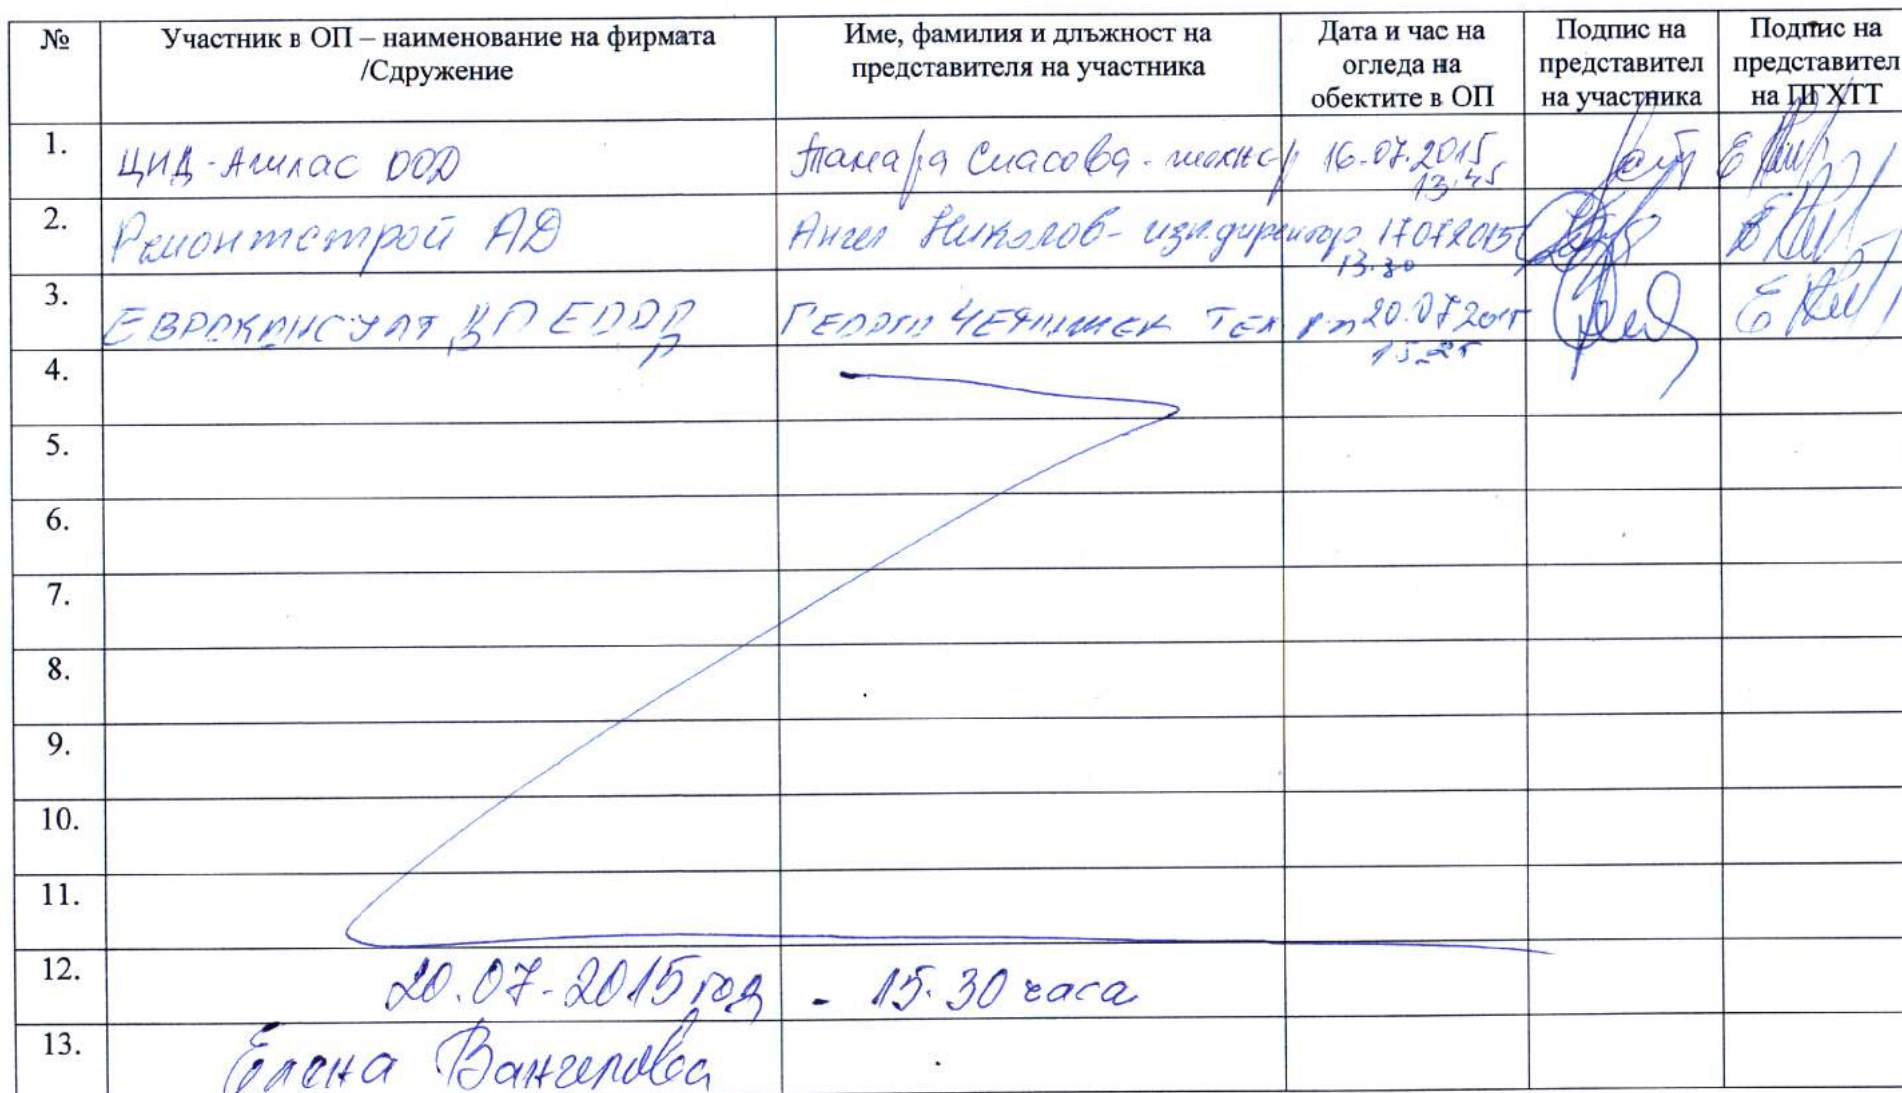 №
Участник в ОП – наименование на фирмата
/Сдружение
Име, фамилия и длъжност на
представителя на участника
Дата и час на
огледа на
обектите в ОП
Подпис на
представител
на участника
Подпис на
представител
на ПГХТТ
1.
ЦИД-Атлас ООД
Тамара Спасова-
16.07.2015
13.45
2.
Ремонтстрой АД
Ангел Николов- изп.директор
17.07.2015
13.30
3.
ЕВРОКОНСУЛТ ЕООД
ГЕОРГИ ТЕХ
20.07.2015
15.25
4.
5.
6.
7.
8.
9.
10.
11.
12.
20.07-2015 год - 15.30 часа
13.
Елена Вангелова